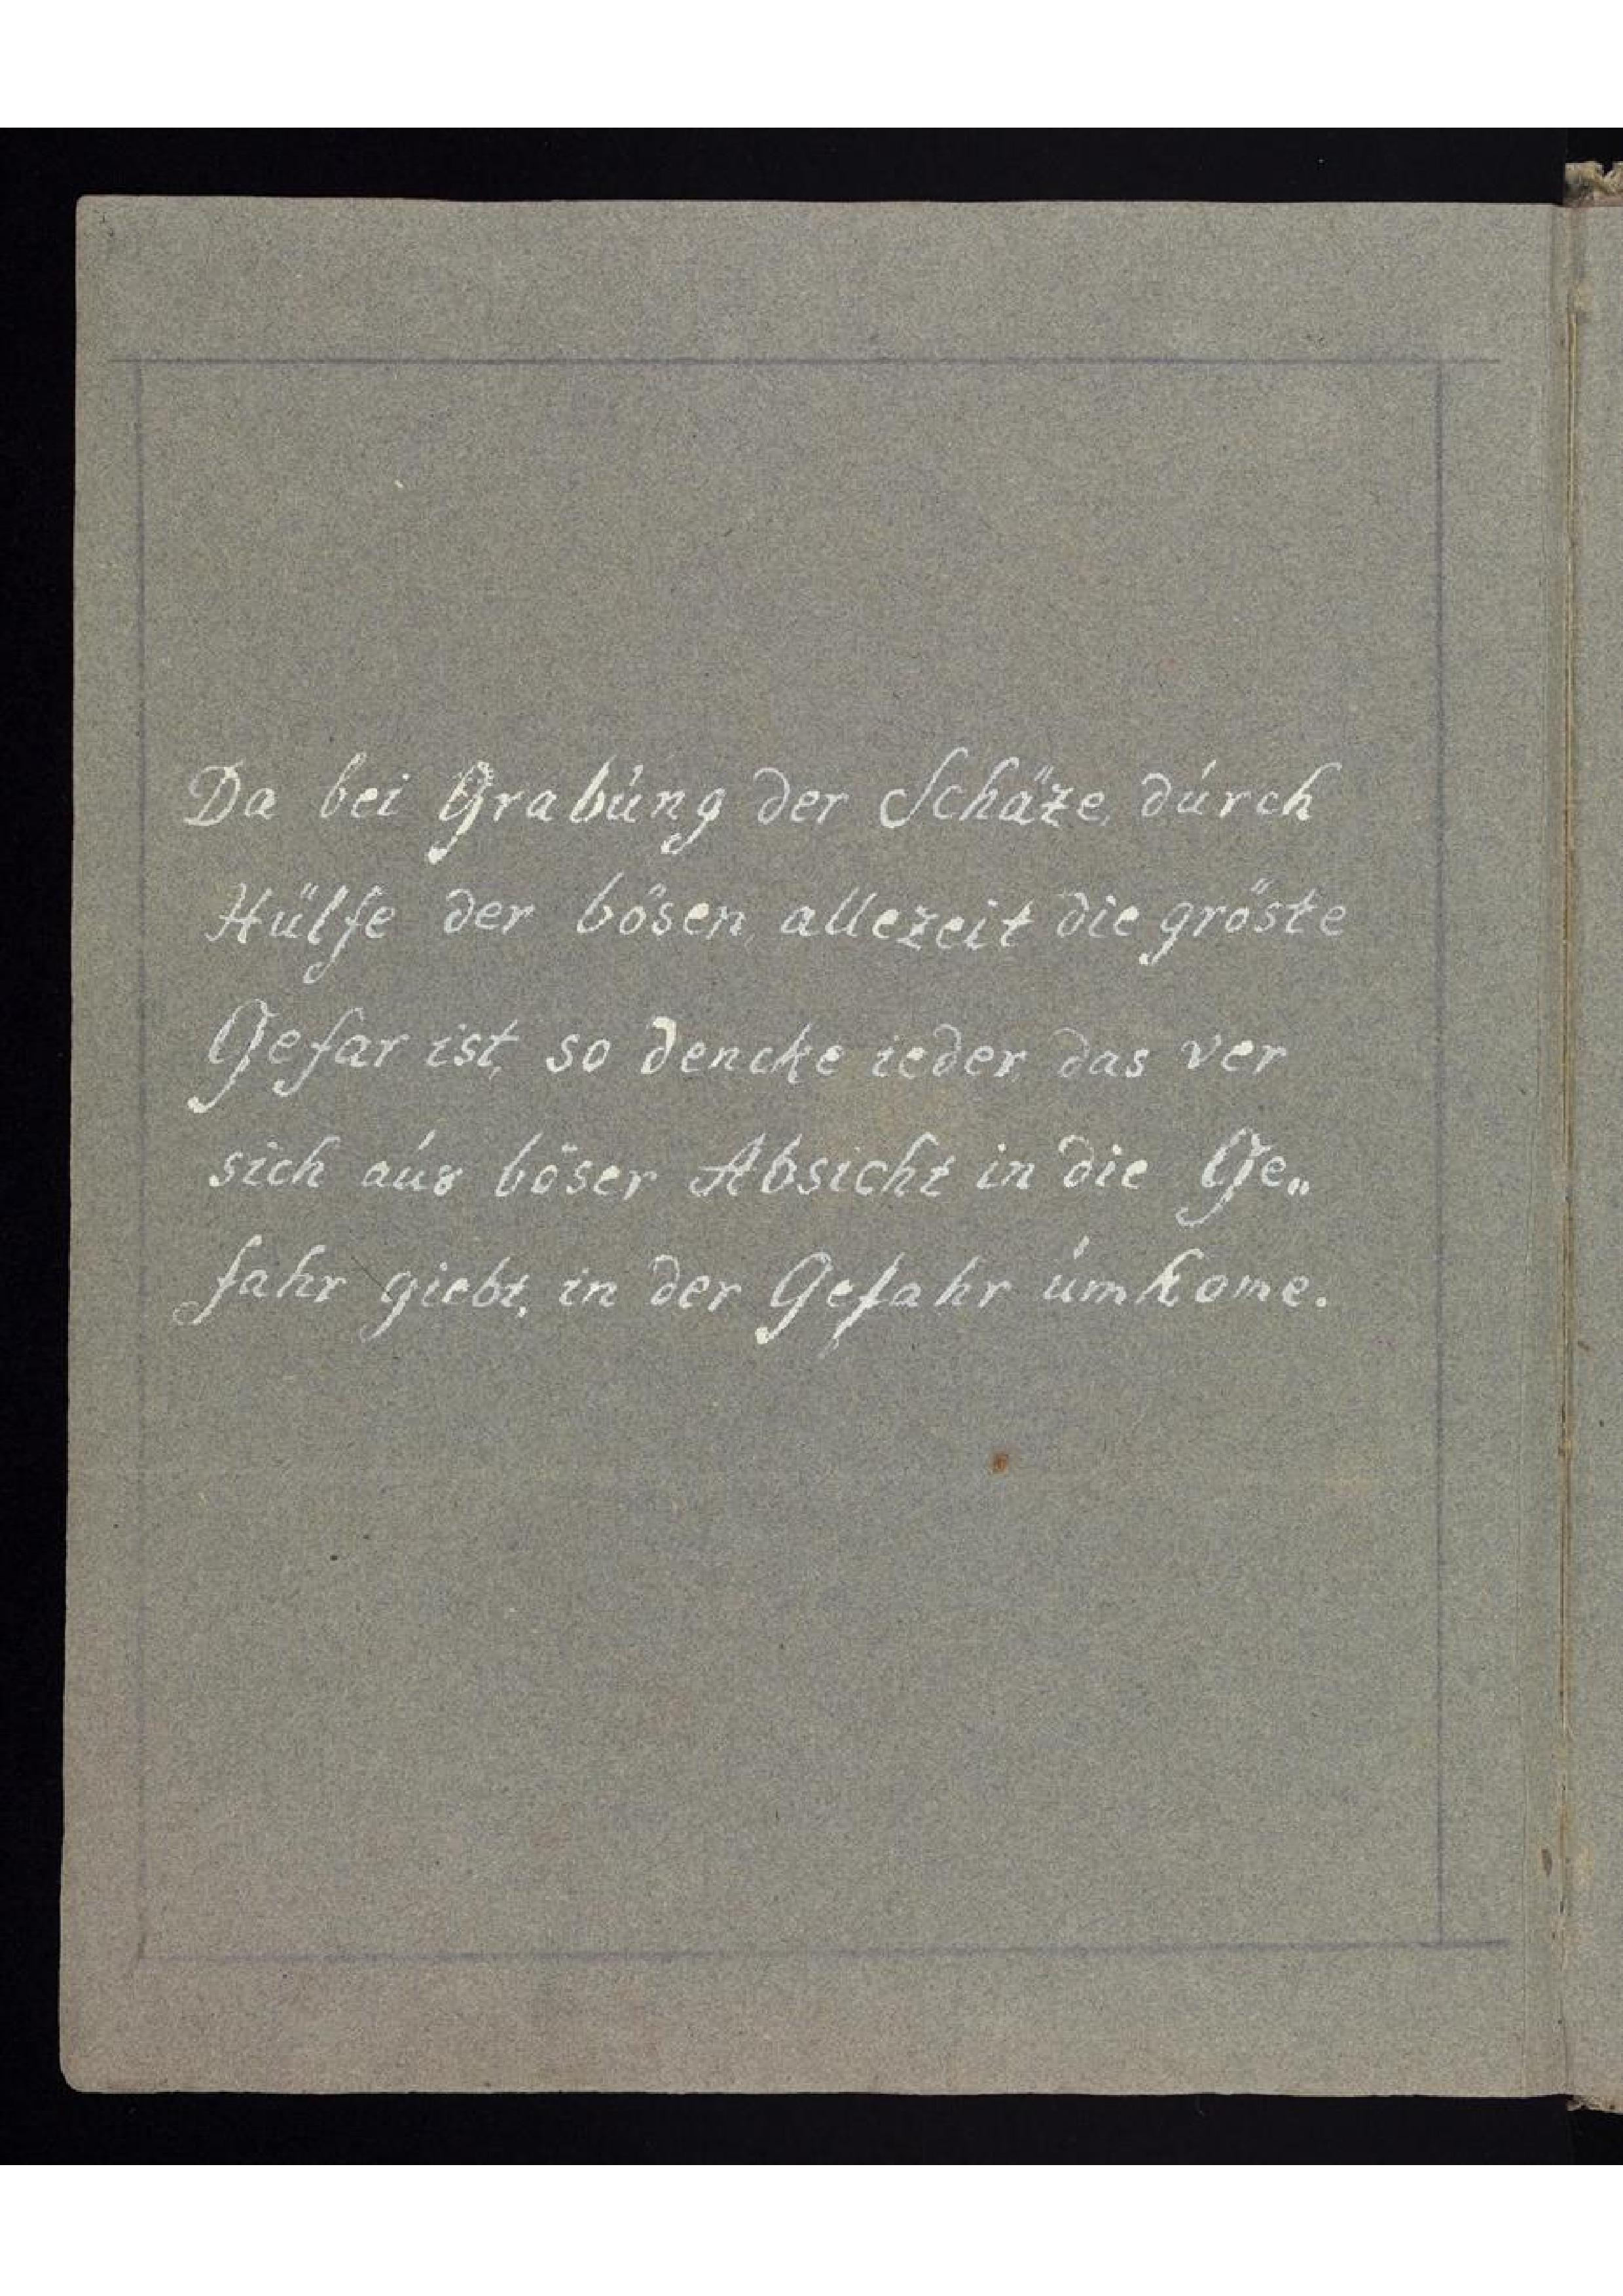 Da bei Grabúng der Schäze, dúrch
Hülfe der bösen, allezeit die gröste
Gefar ist, so dencke ieder, das ver
sich aús böser Absicht in die Ge„
fahr giebt, in der Gefahr úmkome.